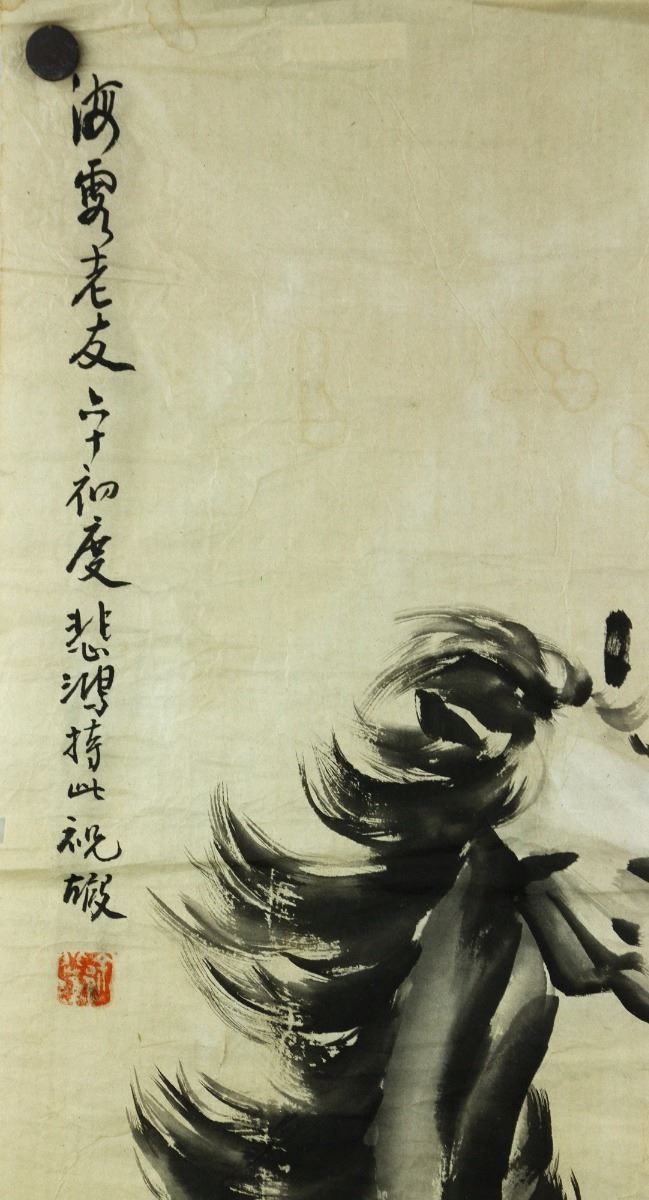 海云老友六十初度悲鴻持此祝嘏